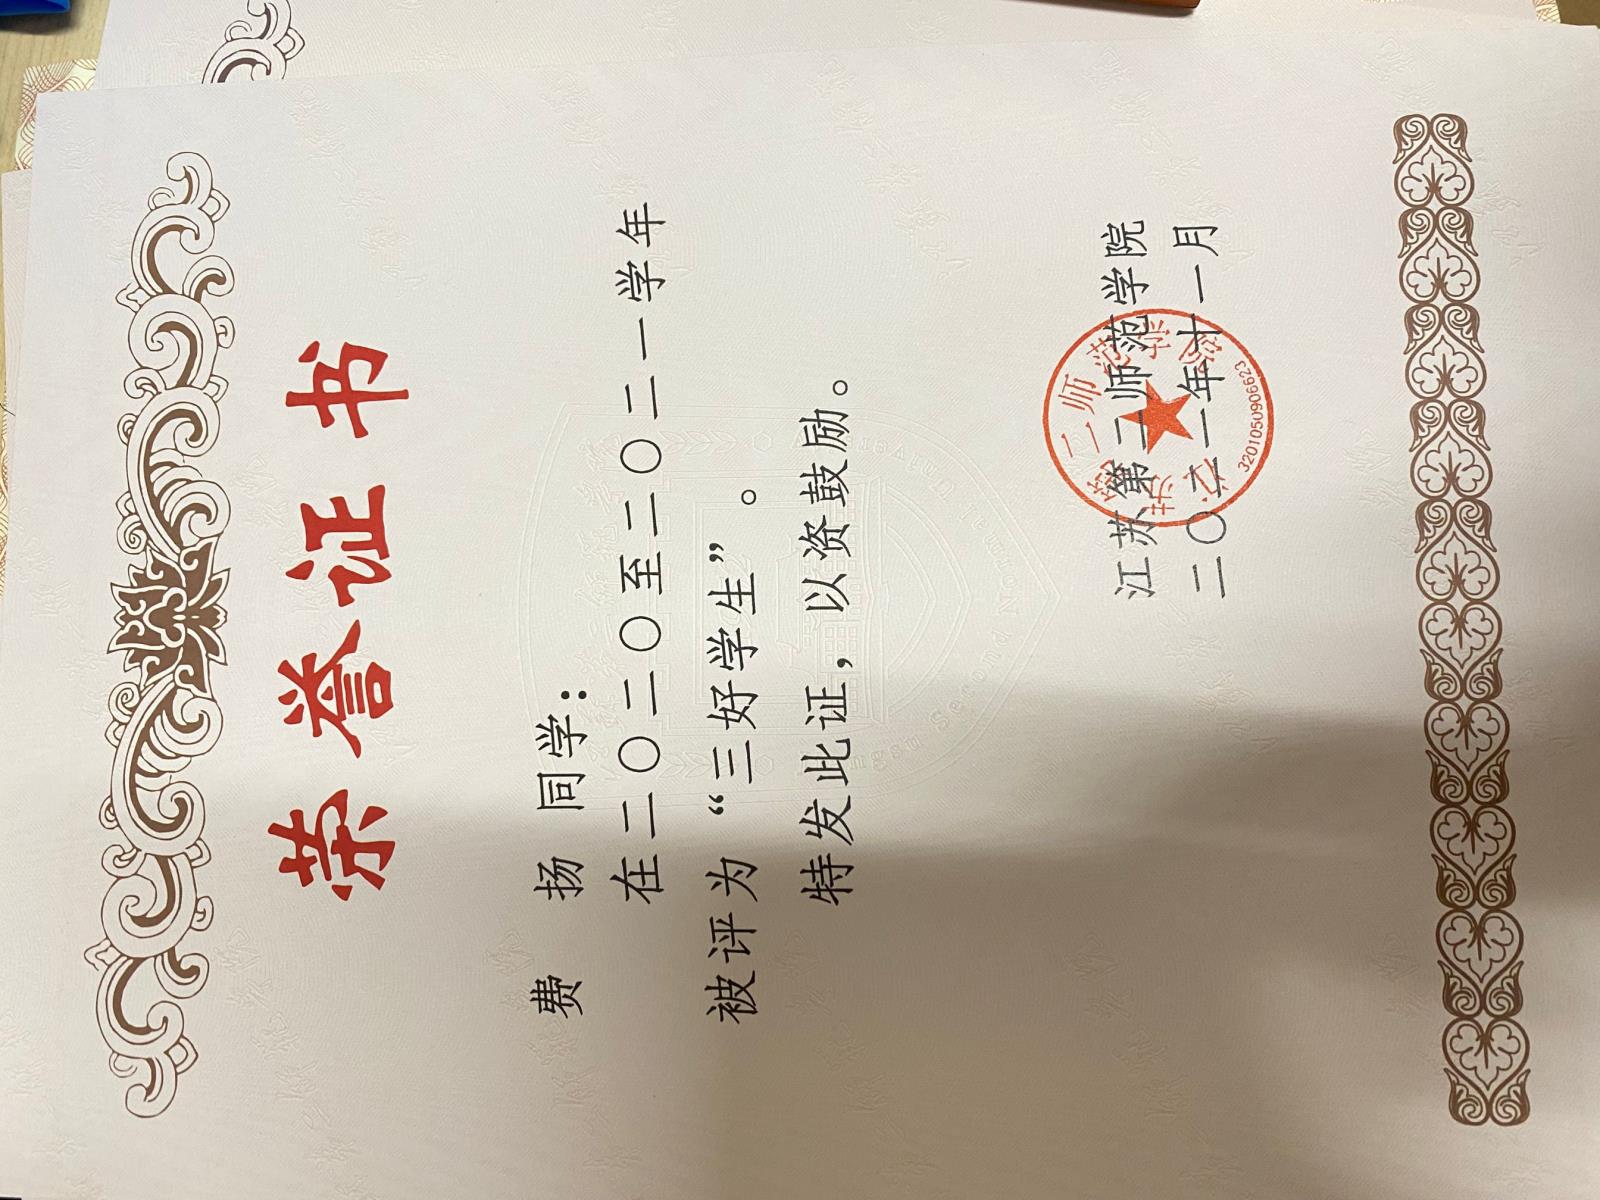 荣誉证书
费 扬 同学：
在二〇二〇至二〇二一学年
被评为“三好学生”。
特发此证，以资鼓励。
江苏第二师范学院
二〇二一年十一月
3201050906623